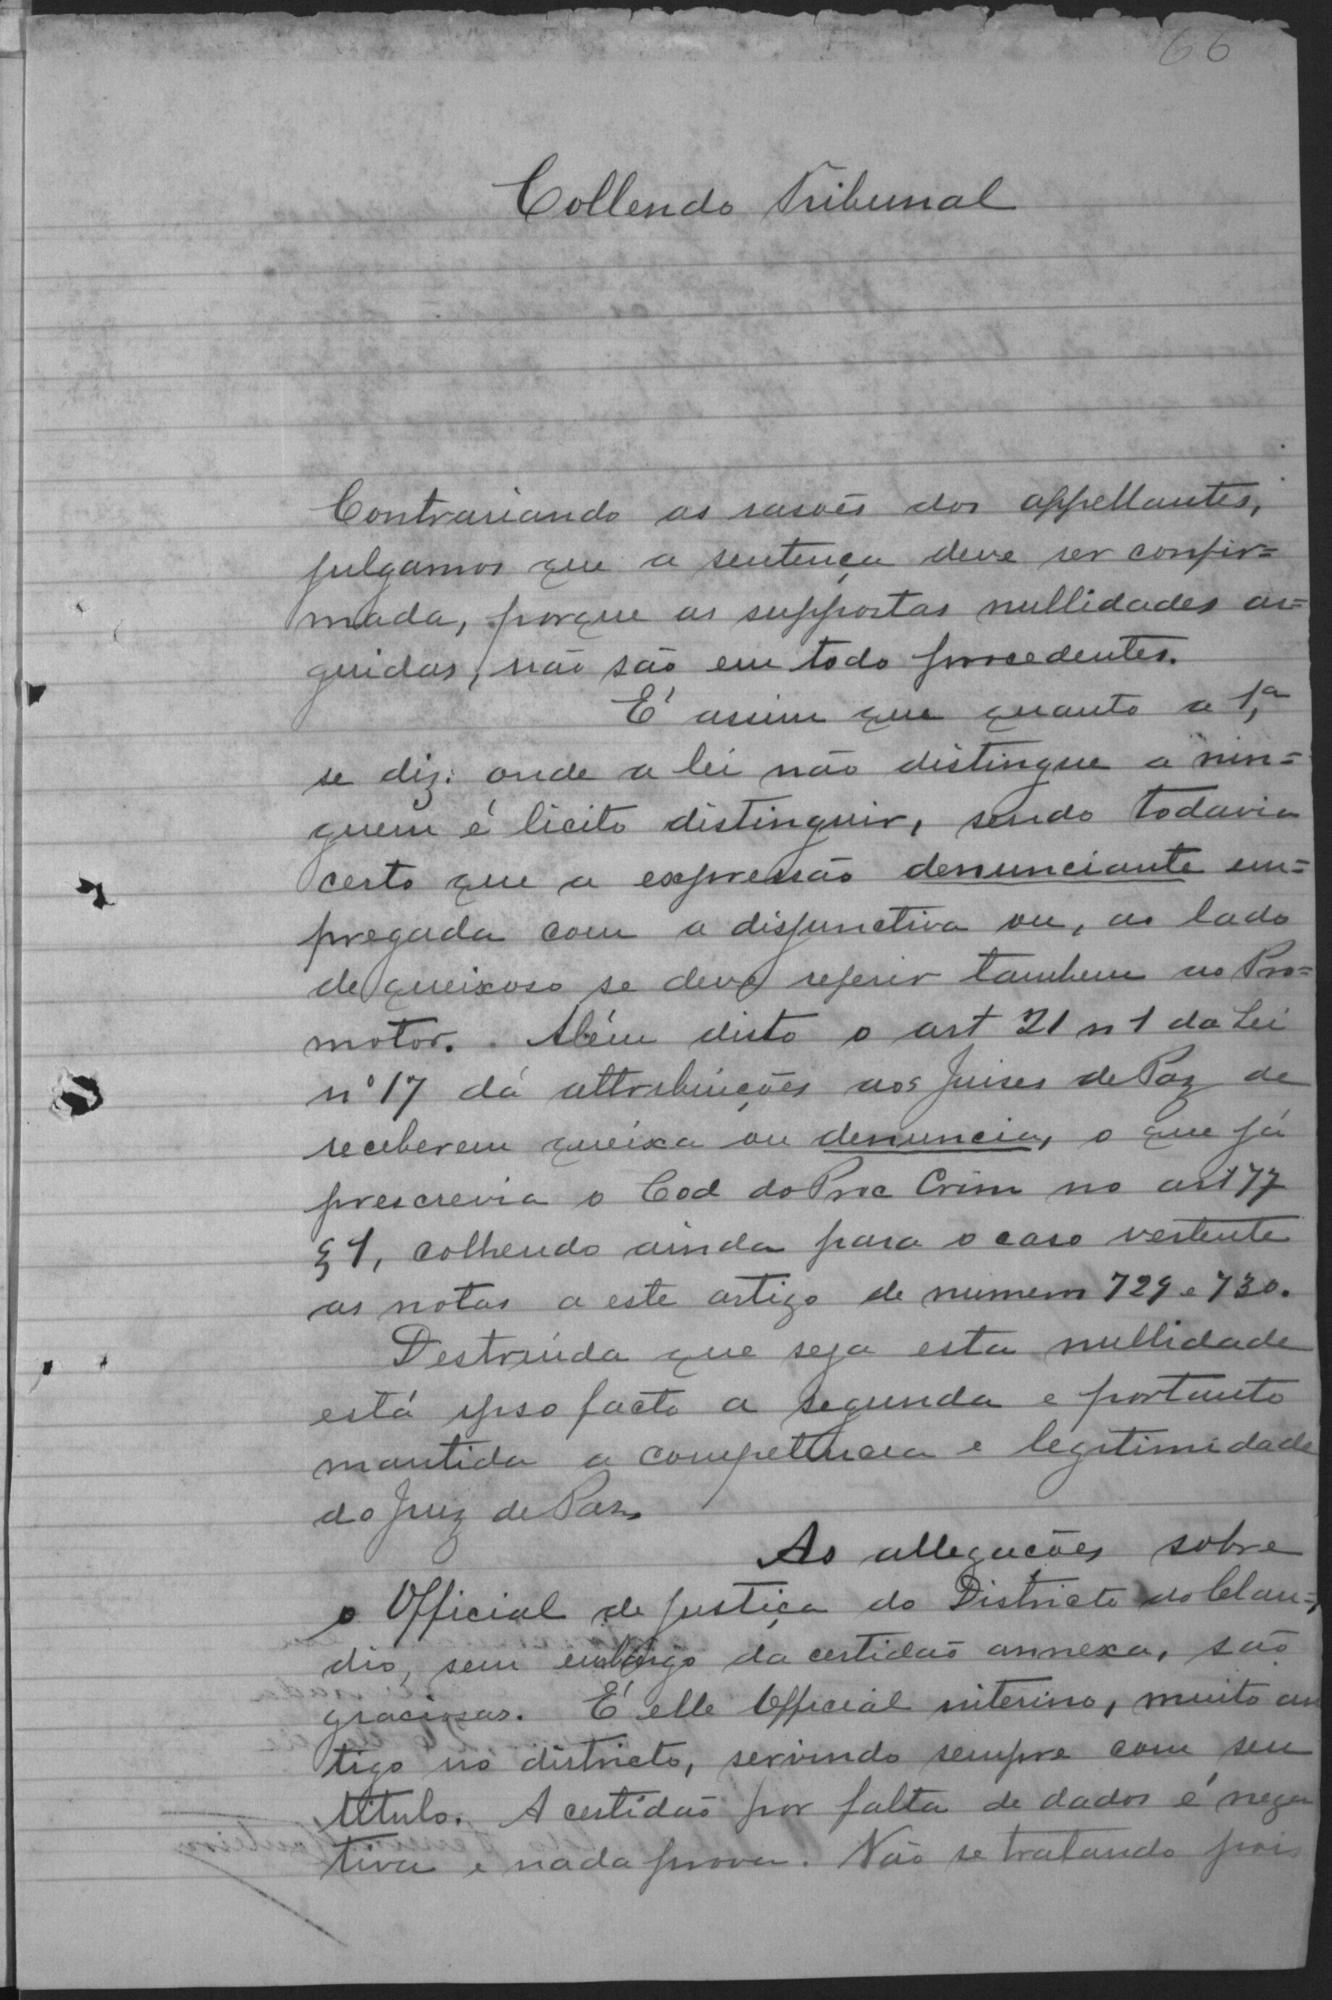 66
Collendo Tribunal
Contrariando as rasões dos appellantes,
julgamos que a sentença deve ser confir=
mada, porque as suppostas nullidades ar=
guidas, não são em todo procedentes.
É assim que quanto a 1ª,
se diz: onde a lei não distingue a nin=
guem é licito distinguir, sendo todavia
certo que a expressão denunciante em=
pregada com a disjunctiva ou, ao lado
de queixoso se deve referir tambem ao Pro=
motor. Além disto o art 21 n 1 da Lei
nº 17 dá attribuições aos Juises de Paz de
receberem queixa ou denuncia, o que já
prescrevia o Cod do Proc Crim no art 77
§ 1, colhendo ainda para o caso vertente
as notas a este artigo de numeros 729 e 730.
Destruida que seja esta nullidade
está ipso facto a segunda e portanto
mantida a competencia e legitimidade
do Juiz de Paz.
As allegações sobre
o Official de justiça do Districto do Clau=
dio, sem embargo da certidão annexa, são
graciosas. É elle Official interino, muito an
tigo no districto, servindo sempre com seu
titulo. A certidão por falta de dados é nega
tiva e nada prova. Não se tratando pois